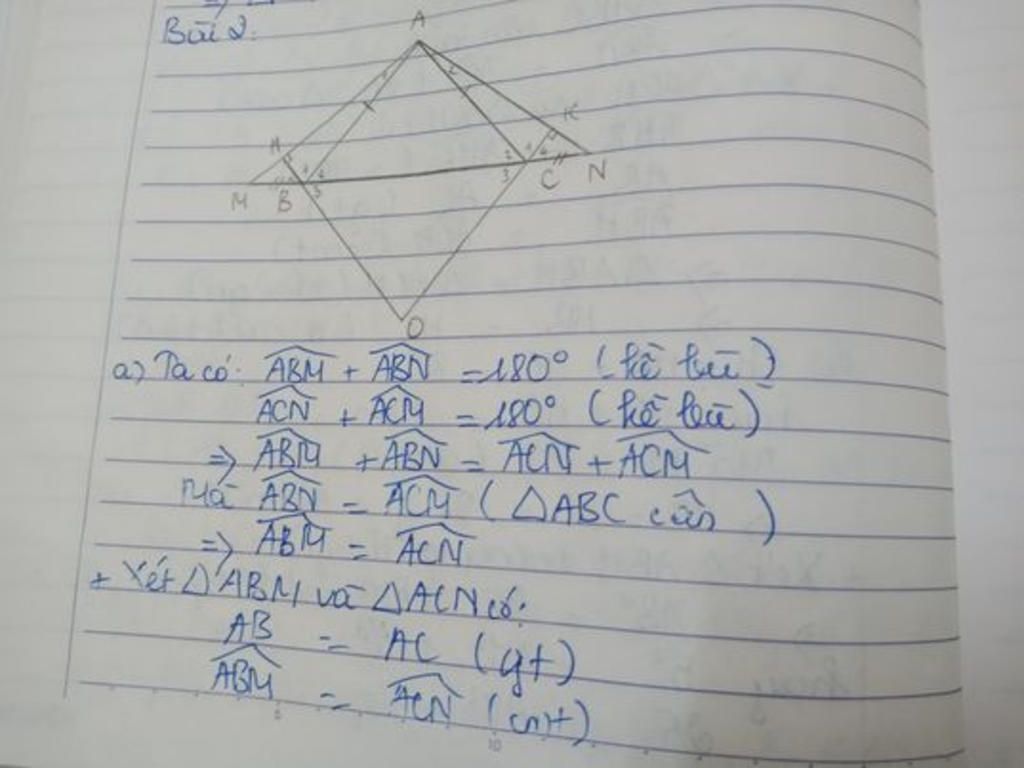 Bài 2:
A
H K
M B C N
O
a) Ta có: ABM + ABN = 180° (kề bù)
ACN + ACM = 180° (kề bù)
=> ABM + ABN = ACN + ACM
Mà ABN = ACM (△ABC cân)
=> ABM = ACN
+ Xét △ABM và △ACN có:
AB = AC (gt)
ABM = ACN (cmt)